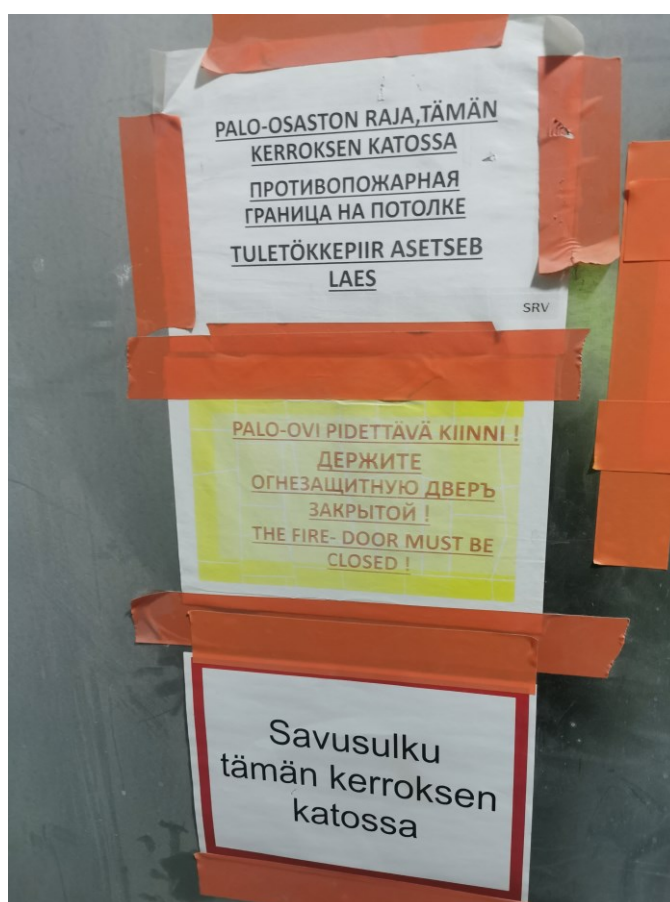 PALO-OSASTON RAJA,TÄMÄN
KERROKSEN KATOSSA
ПРОТИВОПОЖАРНАЯ
ГРАНИЦА НА ПОТОЛКЕ
TULETÖKKEPIIR ASETSEB
LAES
SRV
PALO-OVI PIDETTÄVÄ KIINNI !
ДЕРЖИТЕ
ОГНЕЗАЩИТНУЮ ДВЕРЪ
ЗАКРЫТОЙ !
THE FIRE- DOOR MUST BE
CLOSED !
Savusulku
tämän kerroksen
katossa